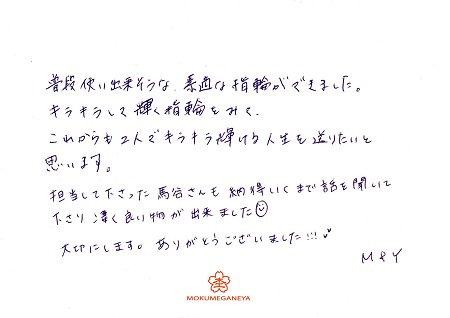 普段使い出来そうな、素適な指輪ができました。
キラキラして輝く指輪をみて、
これからも2人でキラキラ輝ける人生を送りたいと
思います。
担当して下さった馬谷さんも納得いくまで話を聞いて
下さり凄く良い物が出来ました
大切にします。ありがとうございました!!!
M & Y
MOKUMEGANEYA